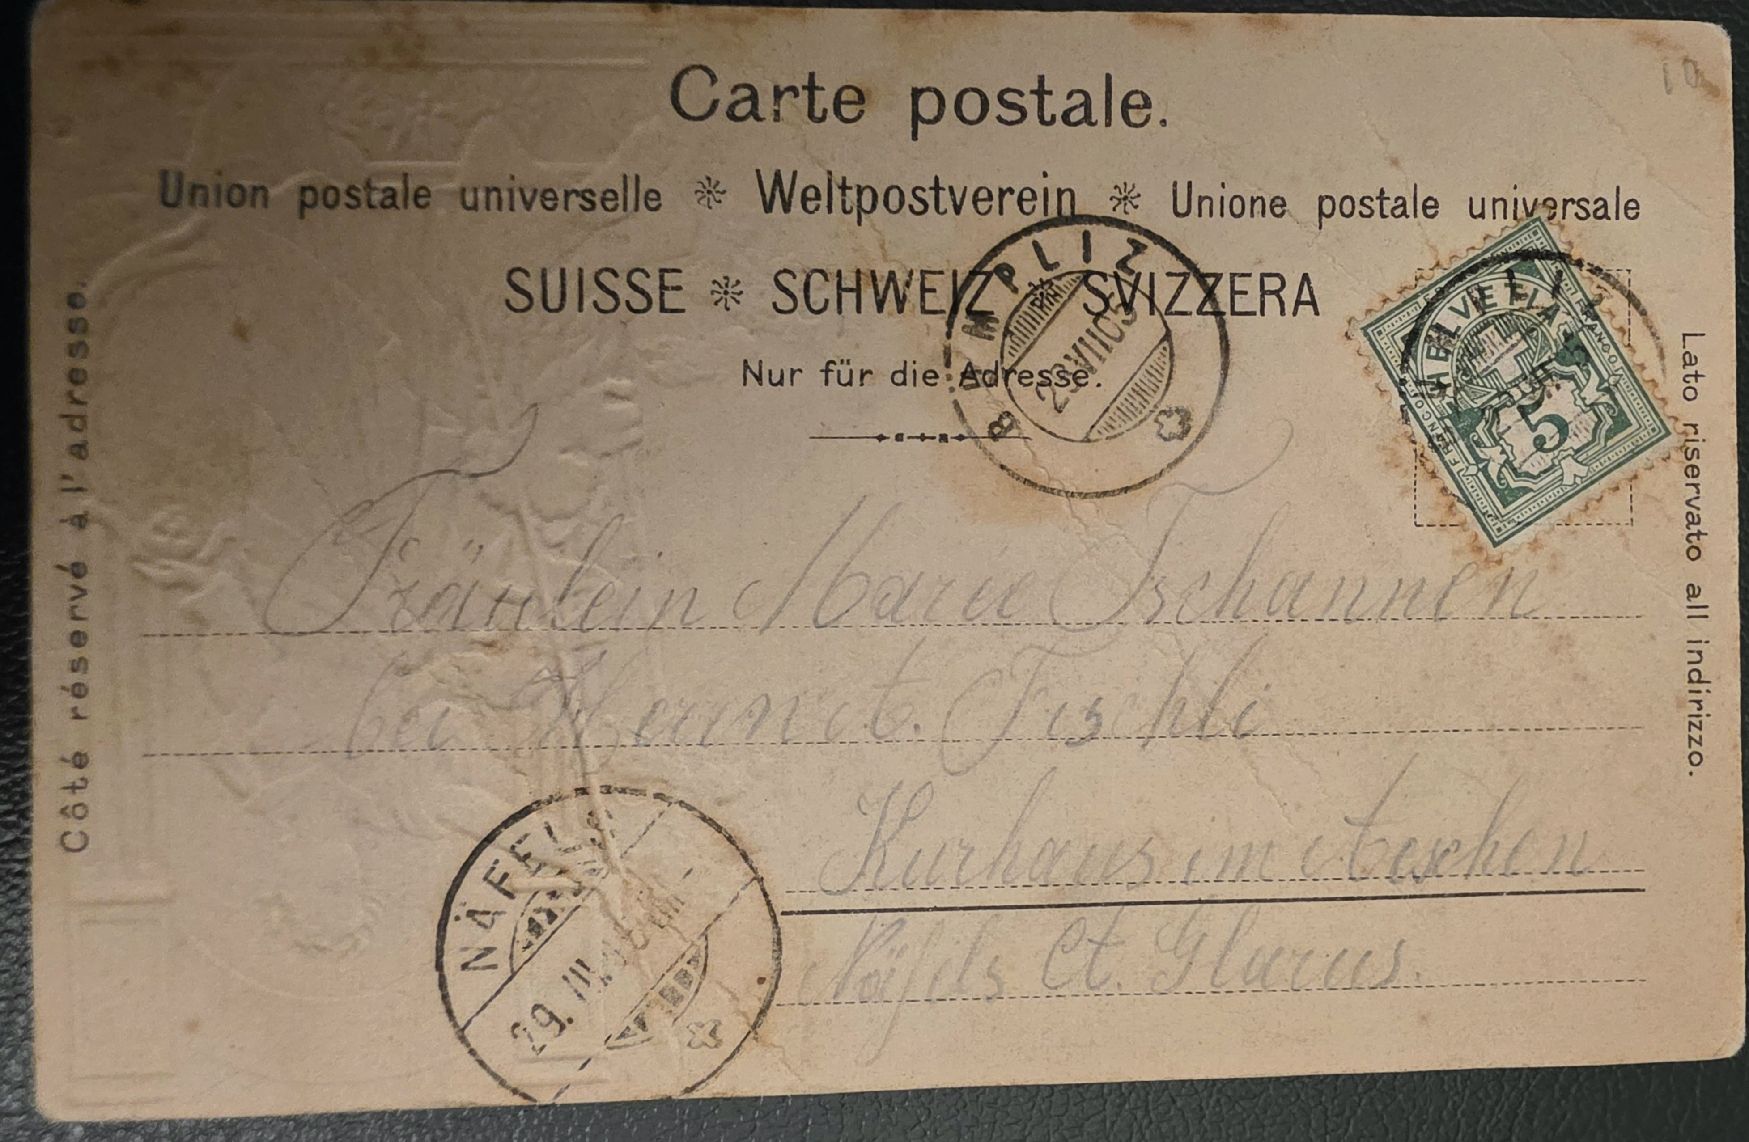 Carte postale.
Union postale universelle ❊ Weltpostverein ❊ Unione postale universale
SUISSE ❊ SCHWEIZ ❊ SVIZZERA
Nur für die Adresse.
Côté réservé à l'adresse.
Lato riservato all indirizzo.
BÜMPLIZ
29.VII.05
HELVETIA
FRANCO
5
Fräulein Marie Tschannen
bei Fischli
Kurhaus im
Näfels Ct. Glarus.
NÄFELS
29.